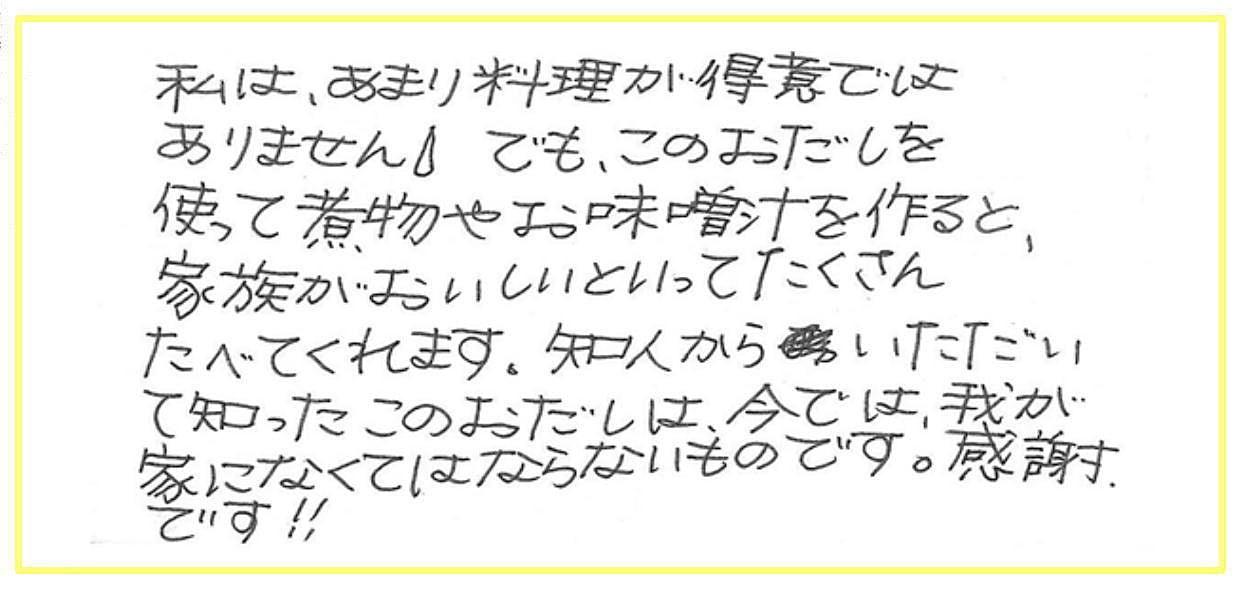 私は、あまり料理が得意では
ありません💧 でも、このおだしを
使って煮物やお味噌汁を作ると、
家族がおいしいといってたくさん
たべてくれます。知人からいただい
て知ったこのおだしは、今では、我が
家になくてはならないものです。感謝
です!!